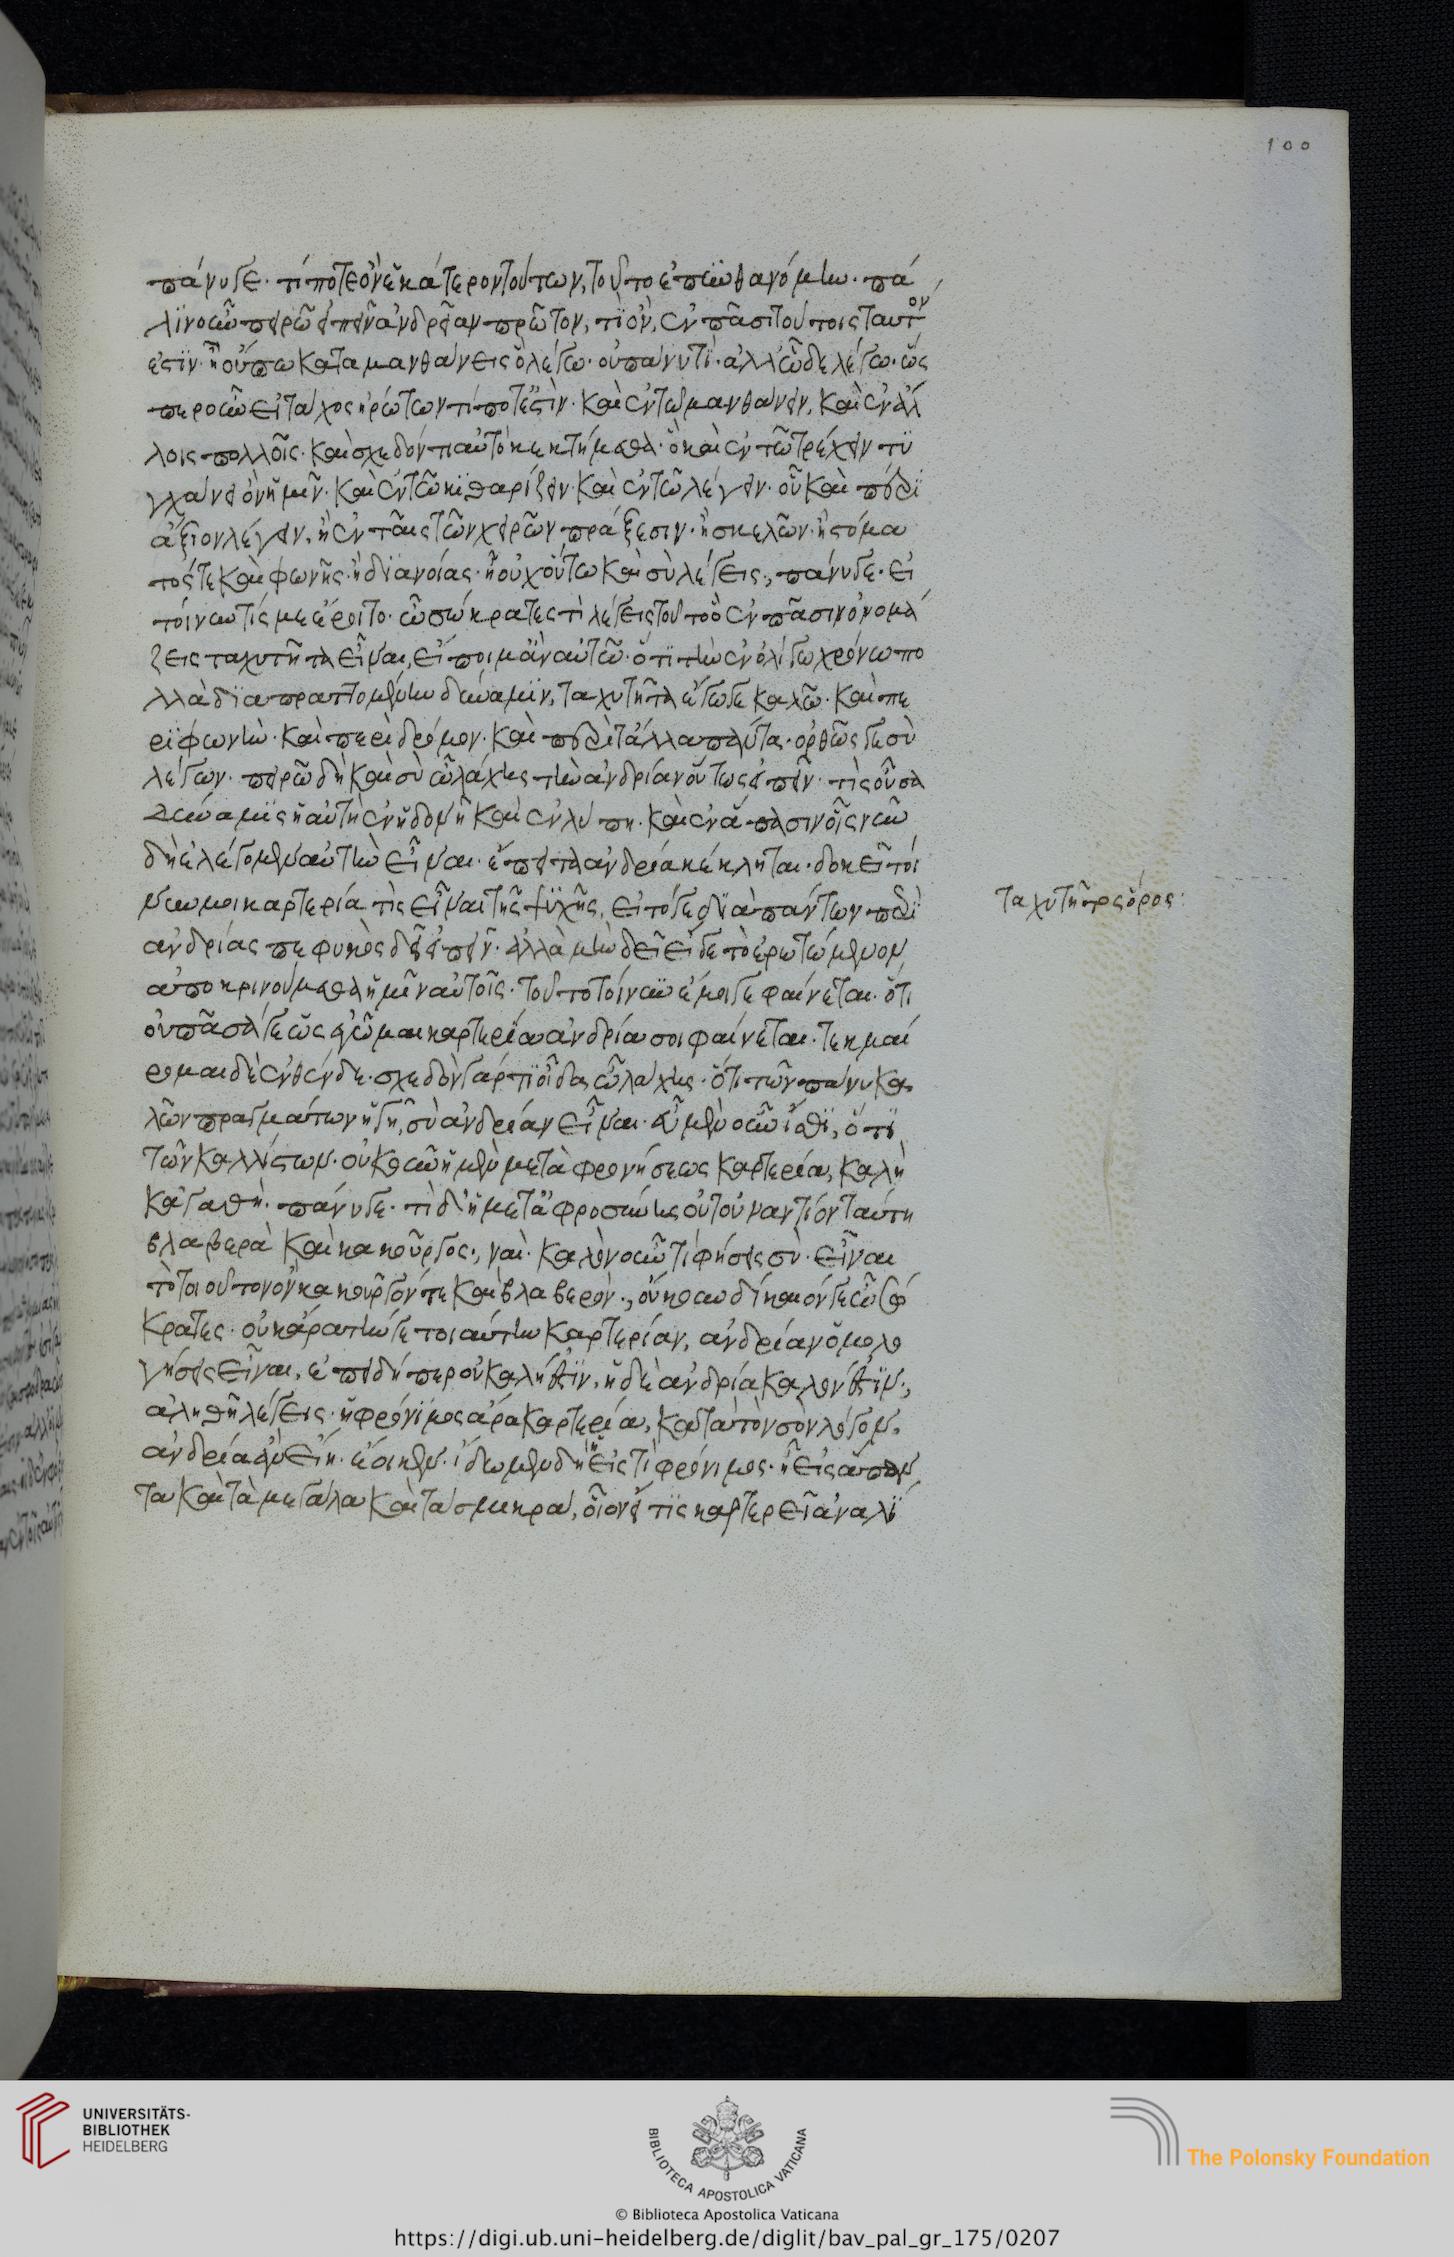 100
πάνυ γε· τί ποτε ὂν ἑκάτερον τούτων, τοῦτο ἐπυνθανόμην· πά
λιν οὖν πειρῶ εἰπεῖν ἀνδρείαν πρῶτον, τί ὂν, ἐν πᾶσι τούτοις ταυτόν
ἐστιν· ἢ οὔπω καταμανθάνεις ὃ λέγω· οὐ πάνυ τι· ἀλλ' ὧδε λέγω· ὥς
περ οὖν εἰ τάχος ἠρώτων τί ποτέ ἐστιν· καὶ ἐν τῶ μανθάνειν, καὶ ἐν ἄλ
λοις πολλοῖς· καὶ σχεδόν τι αὐτὸ κεκτήμεθα· ὃ καὶ ἐν τῶ τρέχειν τυ
γχάνει ὂν ἡμῖν· καὶ ἐν τῶ κιθαρίζειν· καὶ ἐν τῶ λέγειν· οὗ καὶ πέρι
ἄξιον λέγειν, ἢ ἐν ταῖς τῶν χειρῶν πράξεσιν· ἢ σκελῶν· ἢ στόμα
τός τε καὶ φωνῆς· ἢ διανοίας· ἢ οὐχ οὕτω καὶ σὺ λέγεις·, πάνυ γε· εἰ
τοίνυν τίς με ἔροιτο· ὦ σώκρατες τί λέγεις τοῦτο ὃ ἐν πᾶσιν ὀνομά
ζεις ταχυτῆτα εἶναι, εἴποιμ' ἂν αὐτῶ· ὅτι τὴν ἐν ὀλίγω χρόνω πο
λλὰ διαπραττομένην δύναμιν, ταχυτῆτα ἔγωγε καλῶ· καὶ πε
ρὶ φωνὴν· καὶ περὶ δρόμον· καὶ περὶ τἄλλα πάντα· ὀρθῶς γε σὺ
λέγων· πειρῶ δὴ καὶ σὺ ὦ λάχης τὴν ἀνδρίαν οὕτως εἰπεῖν· τίς οὖσα
δύναμις ἡ αὐτὴ ἐν ἡδονῆ καὶ ἐν λύπη· καὶ ἐν ἅπασιν οἷς νῦν
δὴ ἐλέγομεν αὐτὴν εἶναι· ἔπειτα ἀνδρεία κέκληται· δοκεῖ τοί
νυν μοι καρτερία τὶς εἶναι τῆς ψυχῆς, εἰ τό γε διὰ πάντων περὶ
ἀνδρίας πεφυκὸς δεῖ εἰπεῖν· ἀλλὰ μὴν δεῖ εἴ γε τὸ ἐρωτώμενον
ἀποκρινούμεθα ἡμῖν αὐτοῖς· τοῦτο τοίνυν ἔμοιγε φαίνεται· ὅτι
οὐ πᾶσά γε ὥς ἐγῶμαι καρτερία ἀνδρία σοι φαίνεται· τεκμαί
ρομαι δὲ ἐνθένδε· σχεδὸν γάρ τι οἶδα ὦ λάχης· ὅτι τῶν πάνυ κα
λῶν πραγμάτων ἡγῆ, σὺ ἀνδρείαν εἶναι· εὖ μὲν οὖν ἴσθι, ὅτι
τῶν καλλίστων· οὐκοῦν ἡ μὲν μετὰ φρονήσεως καρτερία, καλὴ
κἀγαθὴ· πάνυ γε· τί δ' ἡ μετὰ ἀφροσύνης οὐ τοὐναντίον ταύτη
βλαβερὰ καὶ κακοῦργος·, ναὶ· καλὸν οὖν τι φήσεις σὺ· εἶναι
τὸ τοιοῦτον ὂν κακοῦργόν τε καὶ βλαβερὸν·, οὔκουν δίκαιόν γε ὦ σώ
κρατες· οὐκ ἄρα τήν γε τοιαύτην καρτερίαν, ἀνδρείαν ὁμολο
γήσεις εἶναι, ἐπειδήπερ οὐ καλή ἐστιν, ἡ δὲ ἀνδρία καλόν ἐστιν·,
ἀληθῆ λέγεις· ἡ φρόνιμος ἄρα καρτερία, κατὰ τὸν σὸν λόγον,
ἀνδρεία ἂν εἴη· ἔοικεν· ἴδωμεν δὴ ἡ εἰς τί φρόνιμος· ἢ εἰς ἅπαν
τα καὶ τὰ μεγάλα καὶ τὰ σμικρά, οἷον εἴ τις καρτερεῖ ἀναλί
ταχυτῆτος ὅρος:
UNIVERSITÄTS-
BIBLIOTHEK
HEIDELBERG
BIBLIOTECA APOSTOLICA VATICANA
The Polonsky Foundation
© Biblioteca Apostolica Vaticana
https://digi.ub.uni-heidelberg.de/diglit/bav_pal_gr_175/0207